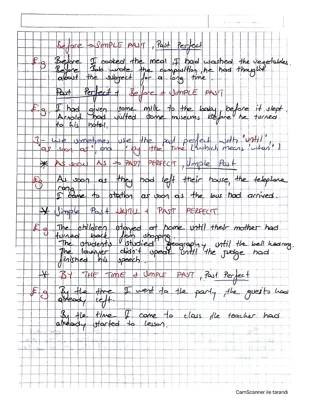 Before → SIMPLE PAST, Past Perfect
E.g Before I cooked the meal I had washed the vegetables.
Before Job wrote the composition, he had thought
about the subject for a long time
Past Perfect + Before + SIMPLE PAST
E.g I had given some milk to the baby before it slept.
Arnold had visited some museums before he turned
to his hotel.
We sometimes use the past perfect with "until"
"as soon as" and "by the time" (which means "when")
* AS SOON AS → PAST PERFECT, Simple Past
Eg As soon as they had left their house, the telephone
rang
I came to station as soon as the bus had arrived.
* Simple Past UNTILL + PAST PERFECT
E.g The children stayed at home until their mother had
turned back from shopping.
The students studied geography until the bell had rang.
The lawyer didn't speak until the judge had
finished his speech.
* BY THE TIME + SIMPLE PAST, Past Perfect
E.g By the time I went to the party the guests had
already left.
By the time I came to class the teacher had
already started to lesson.
CamScanner ile tarandı